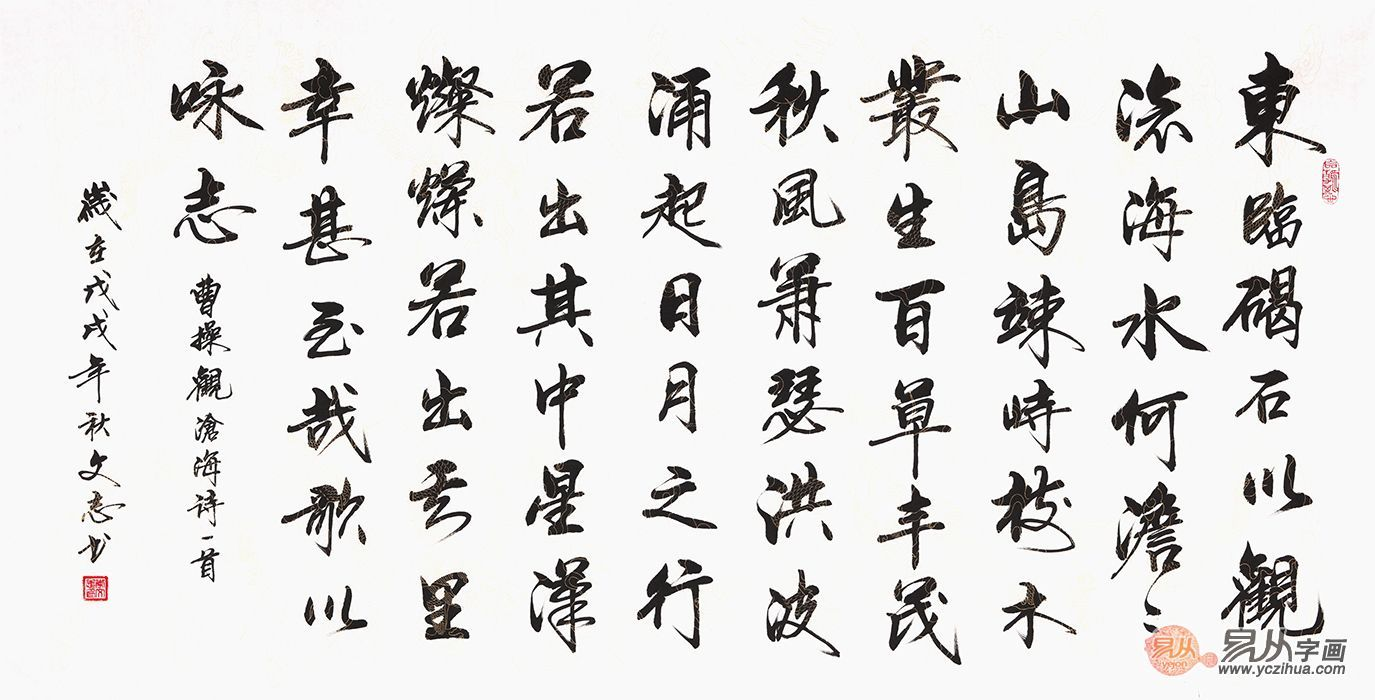 東臨碣石以觀
滄海水何澹〻
山島竦峙樹木
叢生百草丰茂
秋風蕭瑟洪波
涌起日月之行
若出其中星漢
燦爛若出其里
幸甚至哉歌以
咏志
曹操觀滄海詩一首
歲在戊戌年秋文志書
易从
易从字画
www.yczihua.com